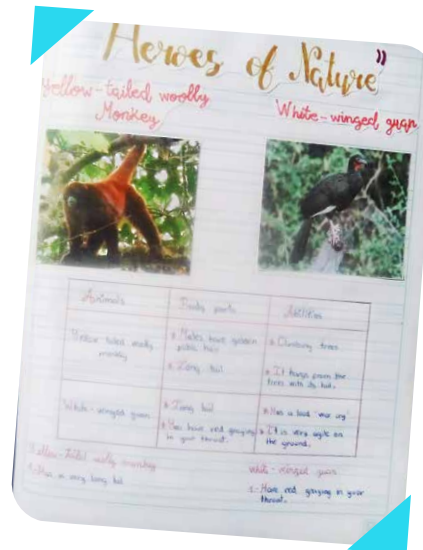 Heroes of Nature"
Yellow-tailed woolly
Monkey
White-winged guan
Animals
Body parts
Abilities
Yellow tailed woolly
monkey
* Males have golden
pubic hair
* Long tail
* Climbing trees
* It hangs from the
trees with its tail.
White-winged guan
* Long tail
* Has have red
in your throat.
* Has a loud
* It is very agile on
the ground.
Yellow-tailed woolly monkey
a very long tail
white-winged guan
Have red in your
throat.